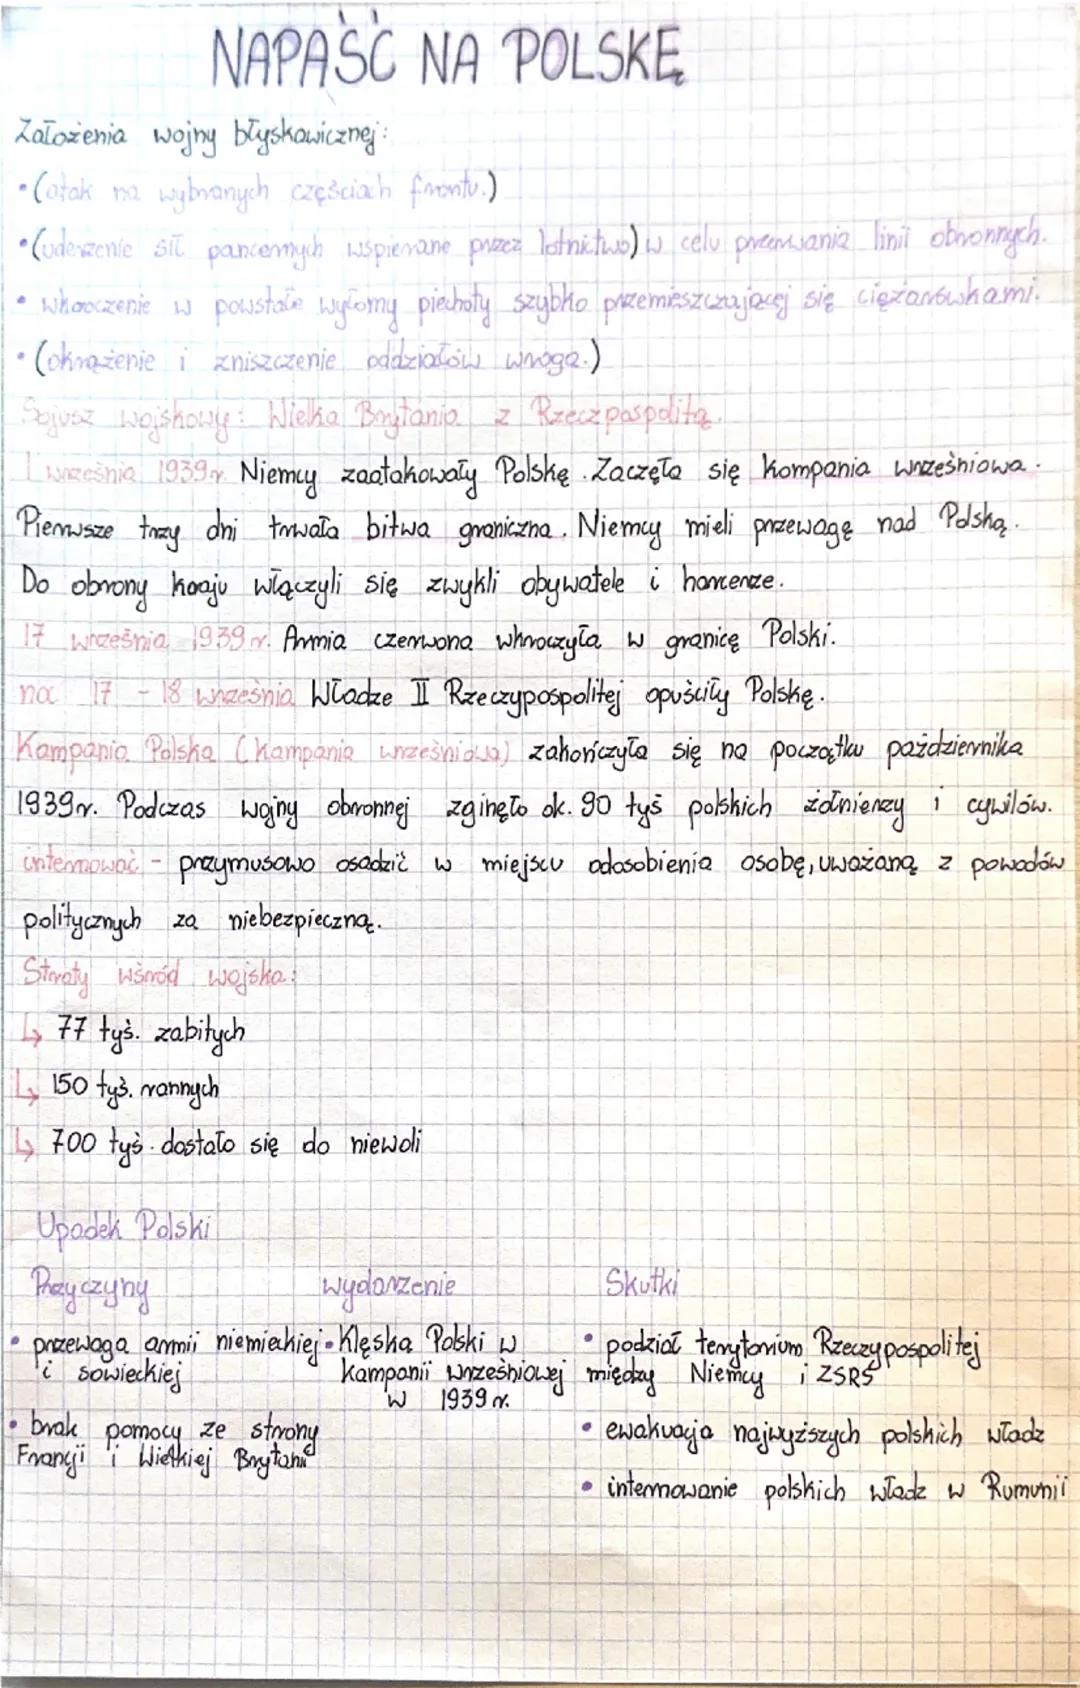 NAPAŚĆ NA POLSKĘ
Założenia wojny błyskawicznej:
• (atak na wybranych częściach frontu.)
• (uderzenie sił pancernych wspierane przez lotnictwo) w celu przerwania linii obronnych.
• wkroczenie w powstałe wyłomy piechoty szybko przemieszczającej się ciężarówkami.
• (okrążenie i zniszczenie oddziałów wroga.)
Sojusz wojskowy: Wielka Brytania z Rzeczpospolitą.
1 września 1939r. Niemcy zaatakowały Polskę. Zaczęła się kompania wrześniowa.
Pierwsze trzy dni trwała bitwa graniczna. Niemcy mieli przewagę nad Polską.
Do obrony kraju włączyli się zwykli obywatele i harcerze.
17 września 1939r. Armia czerwona wkroczyła w granicę Polski.
na 17 - 18 września Władze II Rzeczypospolitej opuściły Polskę.
Kampania Polska (kampania wrześniowa) zakończyła się na początku października
1939r. Podczas wojny obronnej zginęło ok. 90 tyś polskich żołnierzy i cywilów.
internować - przymusowo osadzić w miejscu odosobienia osobę, uważaną z powodów
politycznych za niebezpieczną.
Straty wśród wojska:
↳ 77 tyś. zabitych
↳ 150 tyś. rannych
↳ 700 tyś. dostało się do niewoli
Upadek Polski
Przyczyny wydarzenie Skutki
• przewaga armii niemieckiej • Klęska Polski w • podział terytorium Rzeczypospolitej
i sowieckiej kampanii wrześniowej między Niemcy i ZSRS
w 1939r.
• brak pomocy ze strony • ewakuacja najwyższych polskich władz
Francji i Wielkiej Brytanii
• internowanie polskich władz w Rumunii